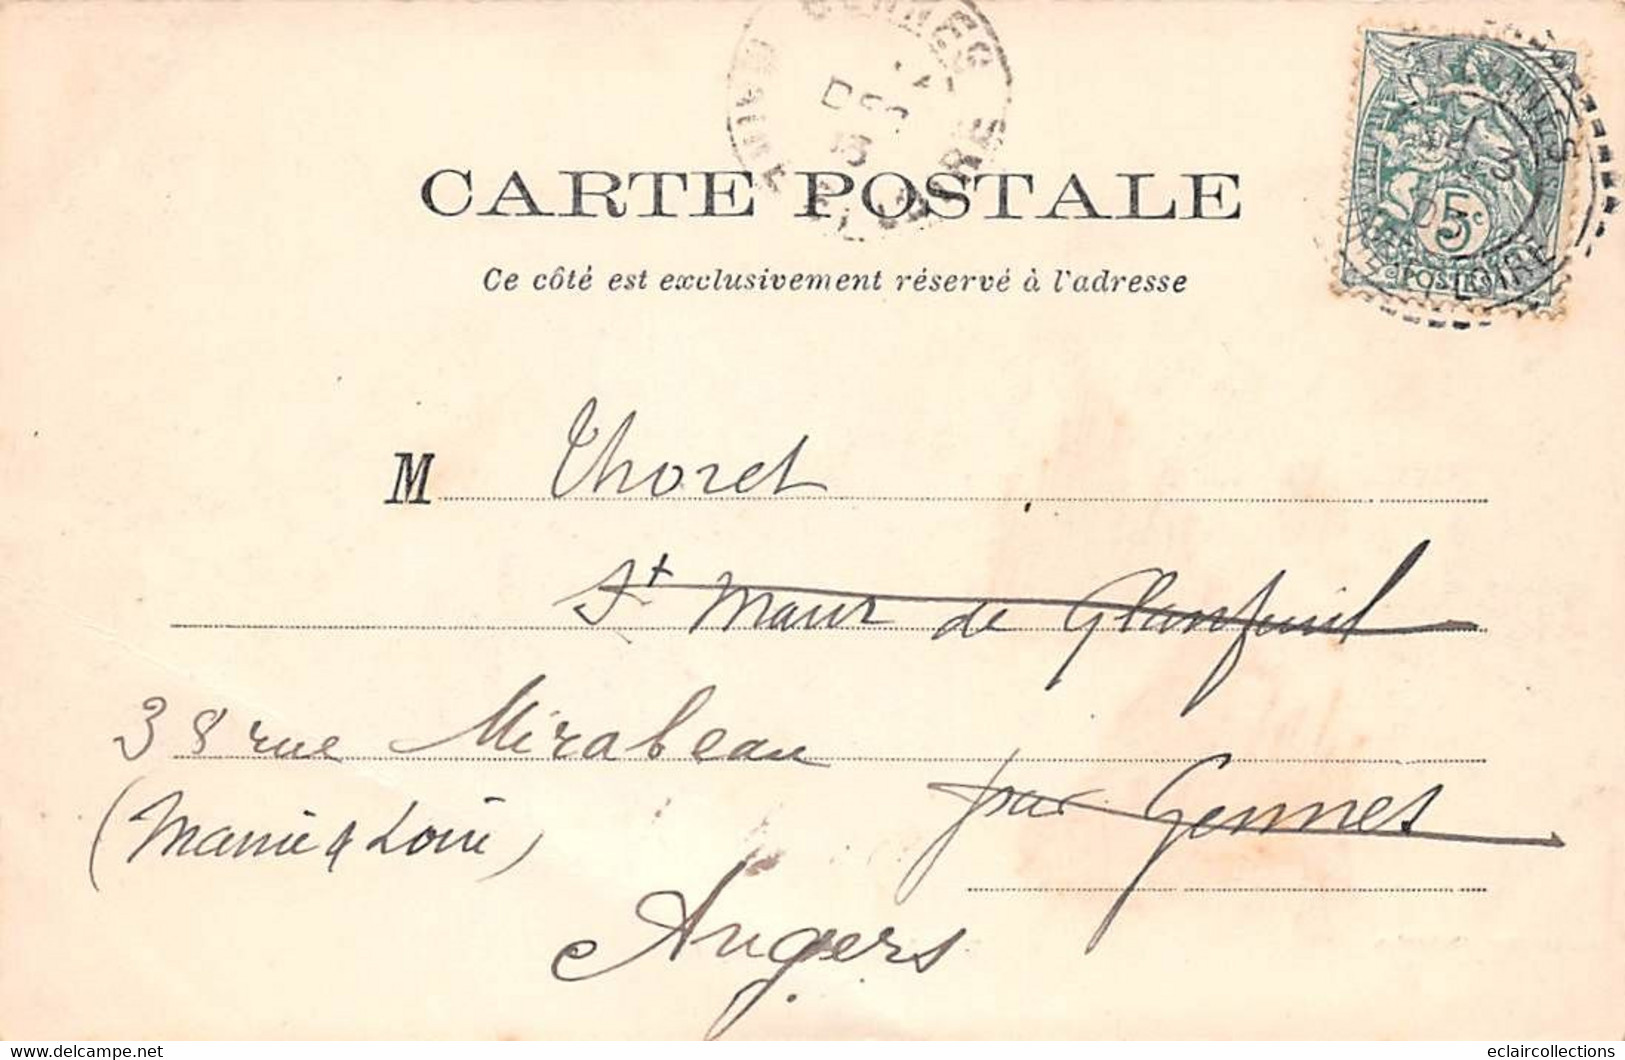 CARTE POSTALE
Ce côté est exclusivement réservé à l'adresse
GENNES
DEC
LOIRE
5c
POSTES
M Thoret
St Maur de Glanfeuil
38 rue Mirabeau
par Gennes
(Maine & Loire)
Angers
eclaircollections